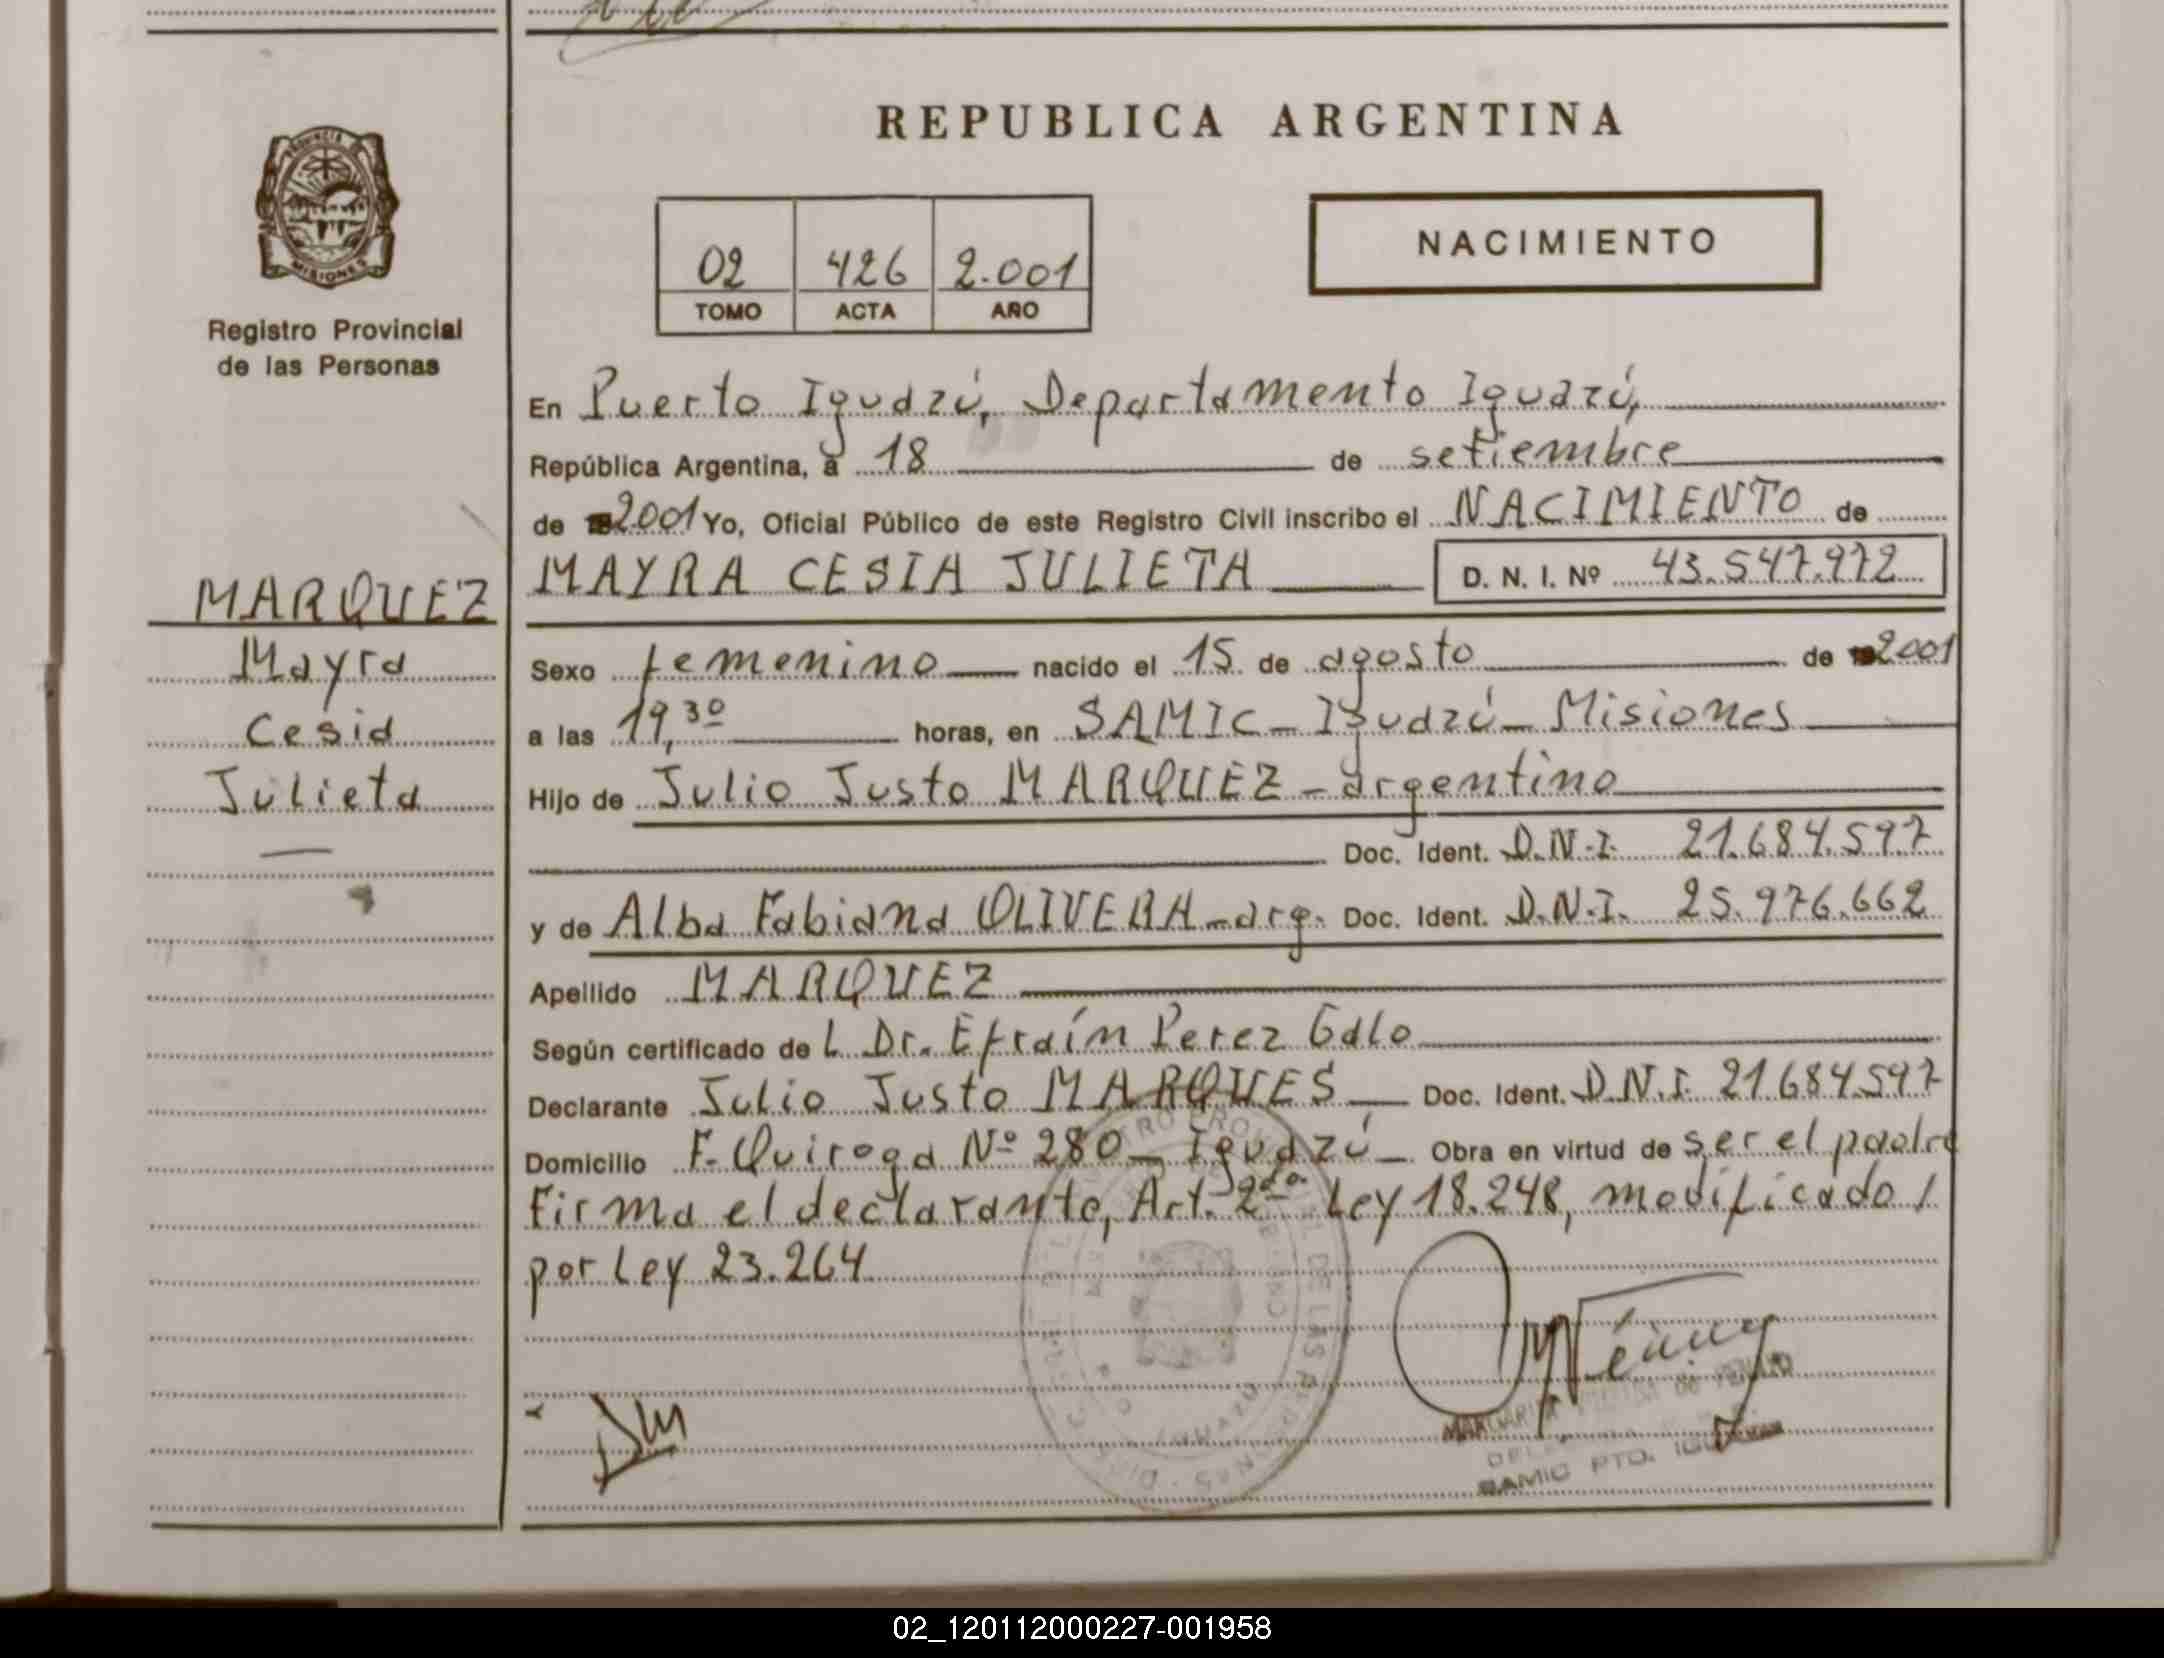 REPUBLICA ARGENTINA
PROVINCIA DE
MISIONES
Registro Provincial
de las Personas
02 426 2.001
TOMO ACTA AÑO
NACIMIENTO
En Puerto Iguazú, Departamento Iguazú,
República Argentina, a 18 de setiembre
de 2001 Yo, Oficial Público de este Registro Civil inscribo el NACIMIENTO de
MAYRA CESIA JULIETA D. N. I. Nº 43.547.972
MARQUEZ
Mayra
Cesia
Julieta
Sexo femenino nacido el 15 de agosto de 2001
a las 19,30 horas, en SAMIC - Iguazú - Misiones
Hijo de Julio Justo MARQUEZ - argentino
Doc. Ident. D.N.I. 21.684.597
y de Alba Fabiana OLIVERA - arg. Doc. Ident. D.N.I. 25.976.662
Apellido MARQUEZ
Según certificado de L Dr. Efraín Perez Galo
Declarante Julio Justo MARQUES Doc. Ident. D.N.I. 21.684.597
Domicilio F. Quiroga Nº 280 - Iguazú - Obra en virtud de ser el padre
Firma el declarante, Art. 2do. Ley 18.248, modificado /
por Ley 23.264
MARGARITA de
SAMIC PTO.
02_120112000227-001958